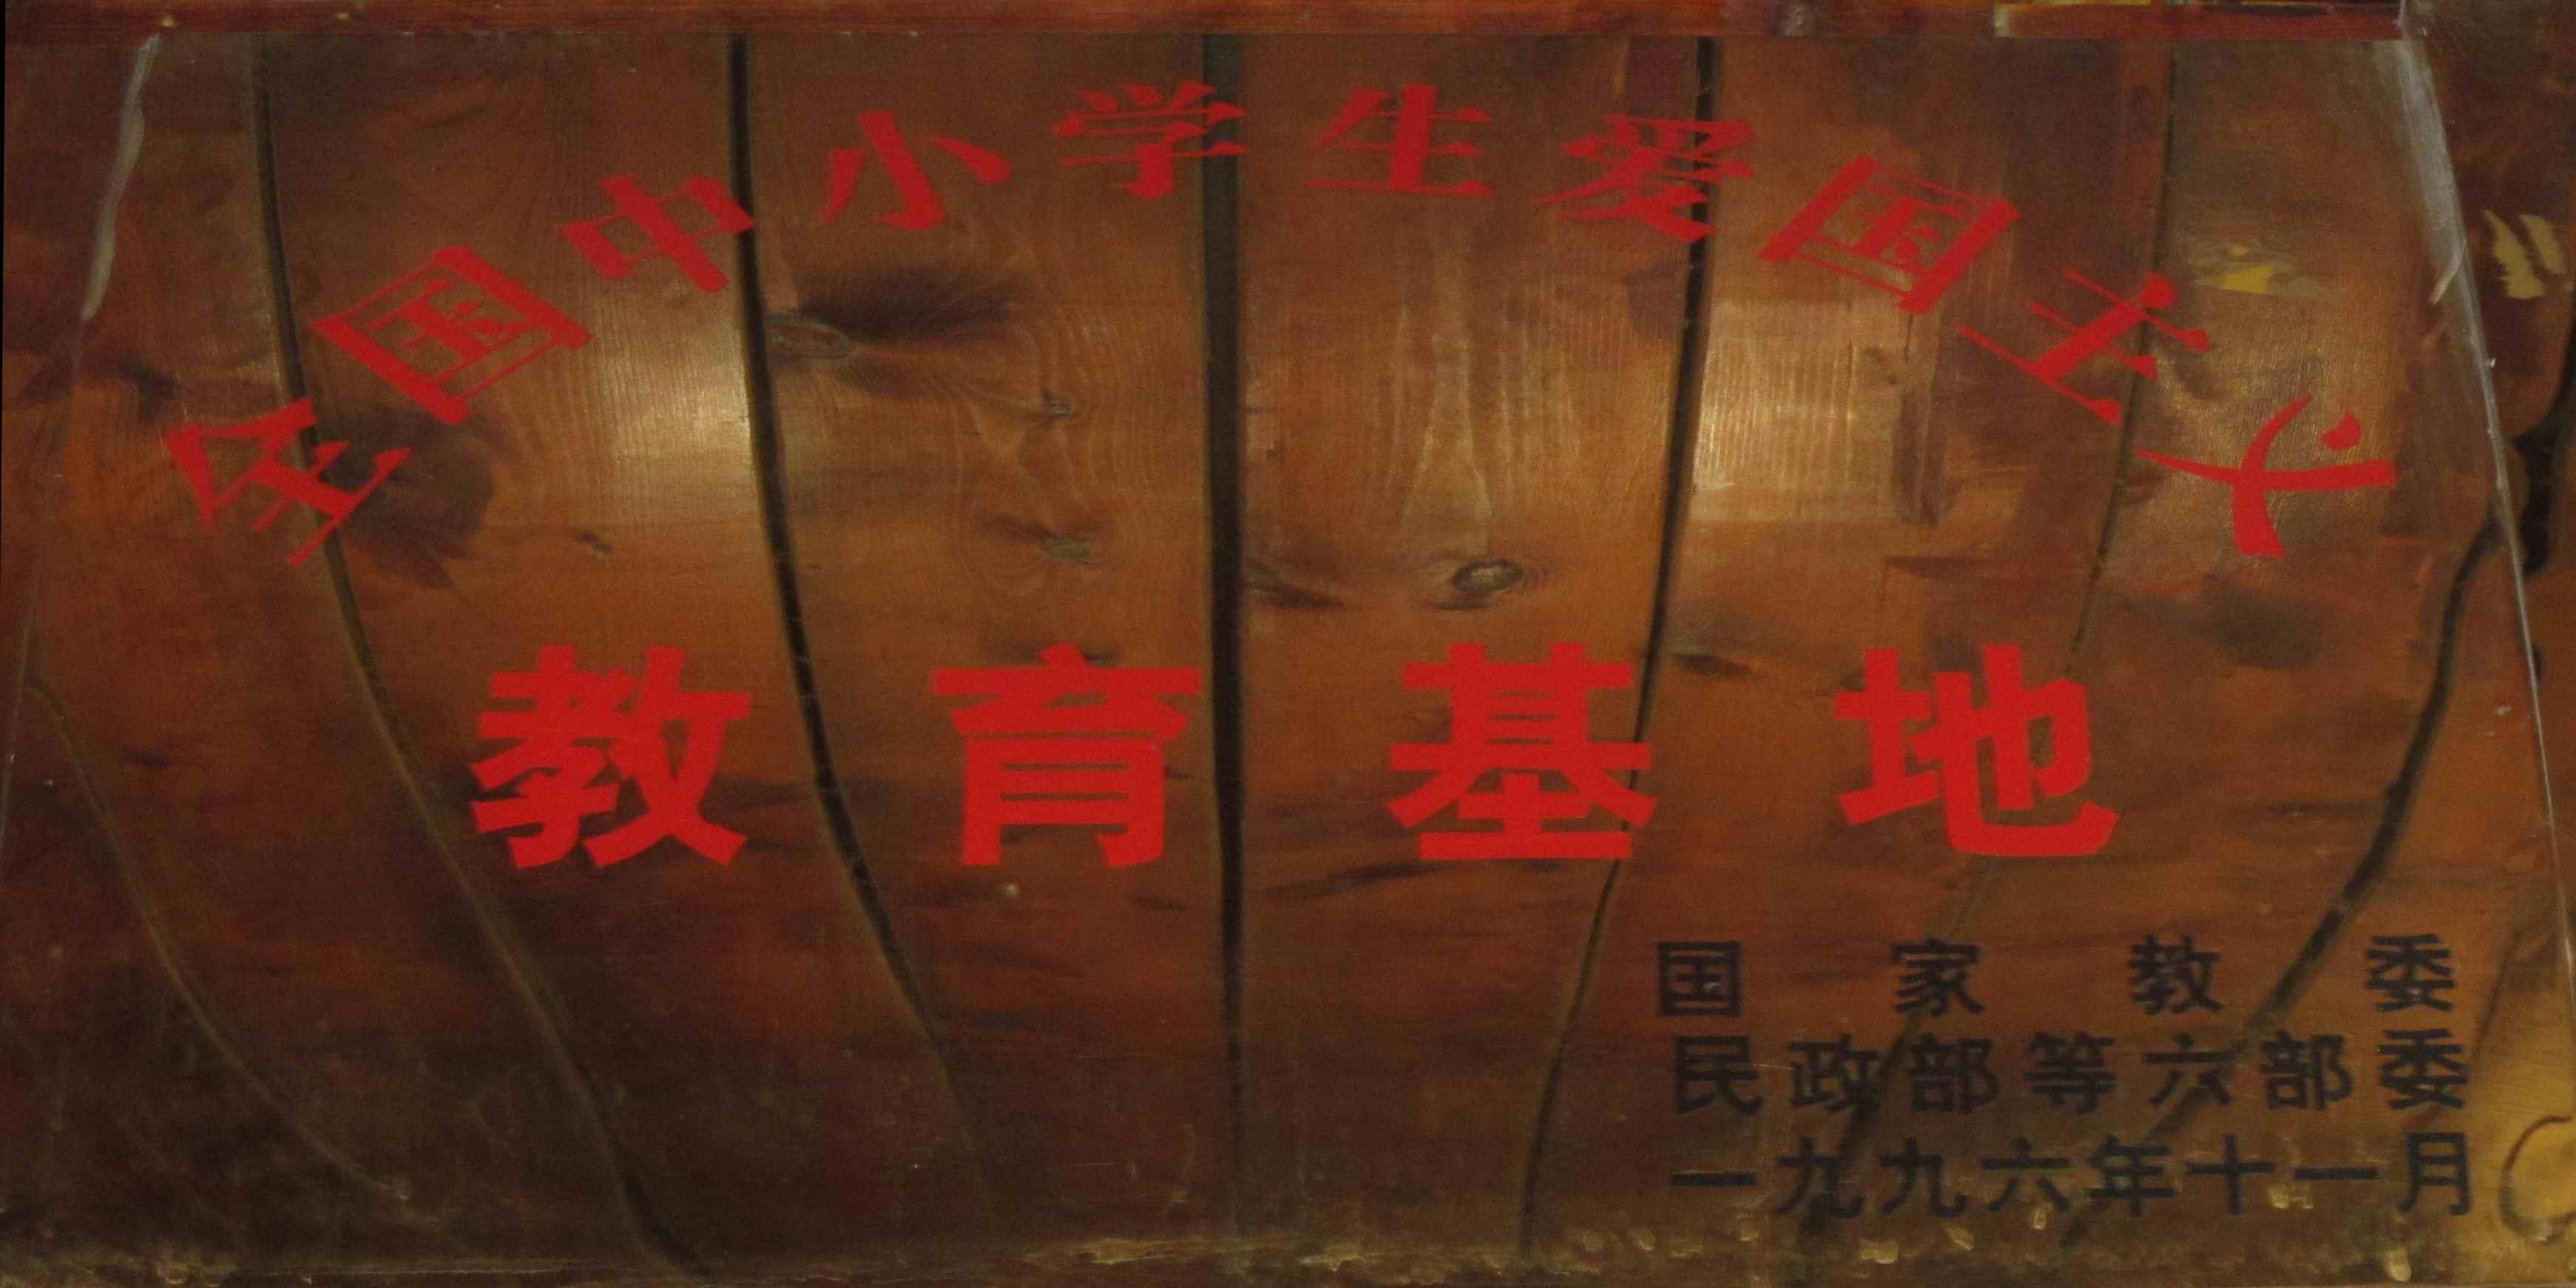 全国中小学生爱国主义
教育基地
国家教委
民政部等六部委
一九九六年十一月